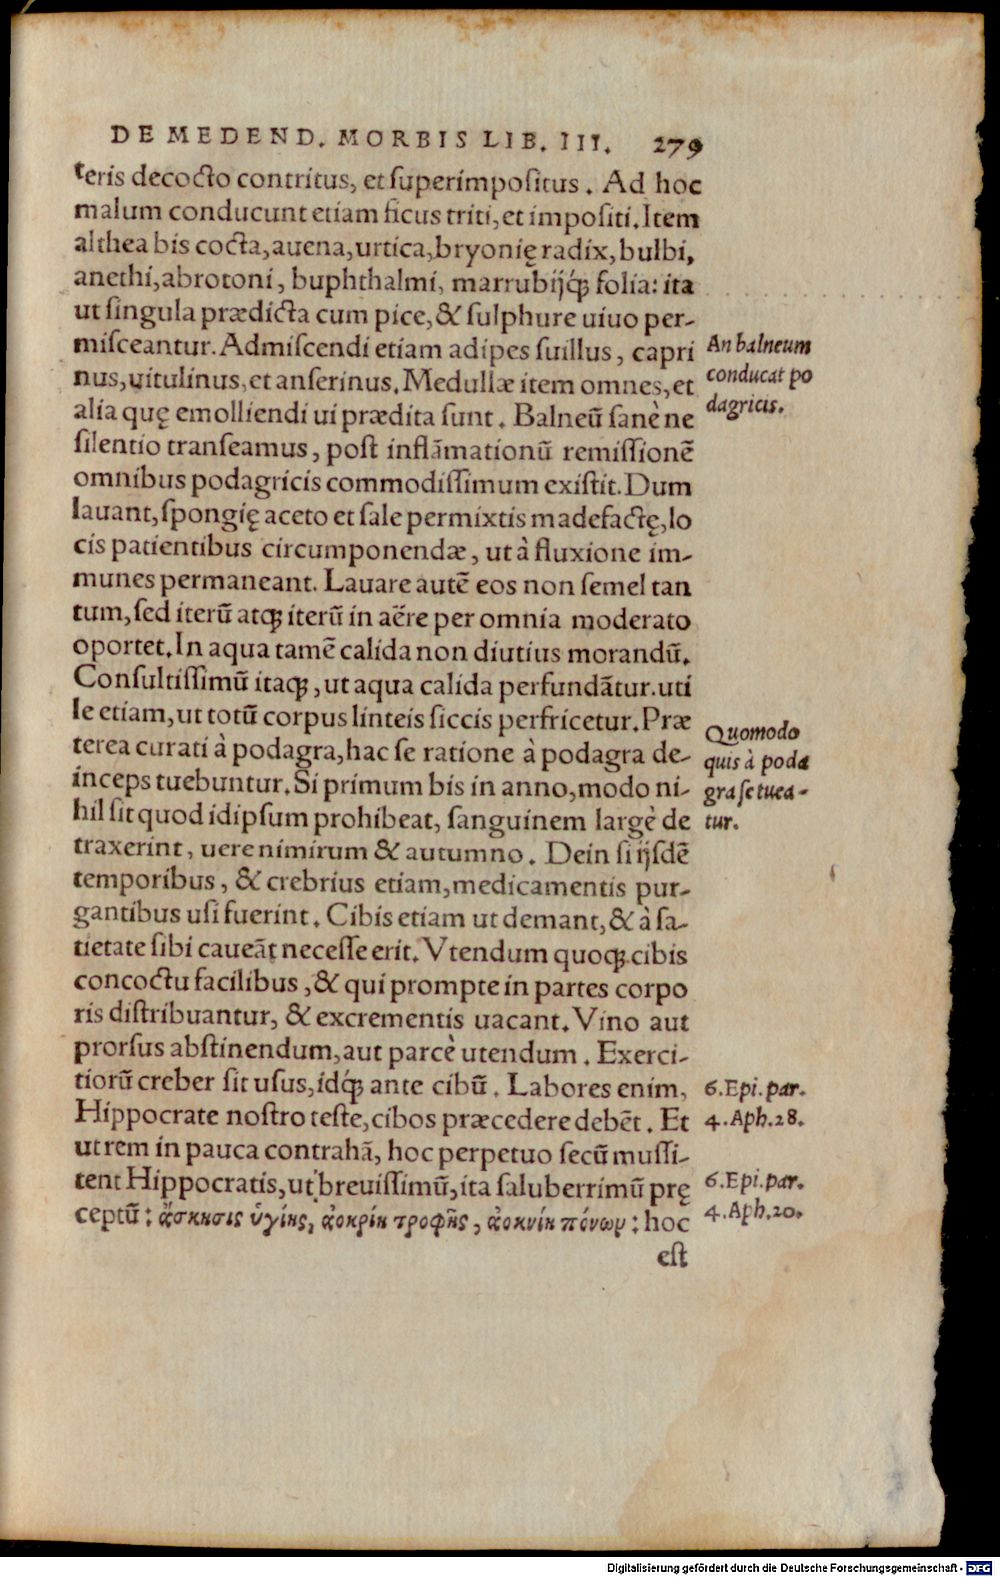 DE MEDEND. MORBIS LIB. III. 279
teris decocto contritus, et superimpositus. Ad hoc
malum conducunt etiam ficus triti, et impositi. Item
althea bis cocta, auena, urtica, bryonię radix, bulbi,
anethi, abrotoni, buphthalmi, marrubijq́; folia: ita
ut singula prædicta cum pice, & sulphure uiuo per-
misceantur. Admiscendi etiam adipes suillus, capri
nus, uitulinus, et anserinus. Medullæ item omnes, et
alia quę emolliendi ui prædita sunt. Balneū sanè ne
silentio transeamus, post inflāmationū remissionē
omnibus podagricis commodissimum existit. Dum
lauant, spongię aceto et sale permixtis madefactę, lo
cis patientibus circumponendæ, ut à fluxione im-
munes permaneant. Lauare autē eos non semel tan
tum, sed iterū atq; iterū in aëre per omnia moderato
oportet. In aqua tamē calida non diutius morandū.
Consultissimū itaq;, ut aqua calida perfundātur. uti
le etiam, ut totū corpus linteis siccis perfricetur. Præ
terea curati à podagra, hac se ratione à podagra de-
inceps tuebuntur. Si primum bis in anno, modo ni-
hil sit quod idipsum prohibeat, sanguinem largè de
traxerint, uere nimirum & autumno. Dein si ijsdē
temporibus, & crebrius etiam, medicamentis pur-
gantibus usi fuerint. Cibis etiam ut demant, & à sa-
tietate sibi caueāt necesse erit. Vtendum quoq; cibis
concoctu facilibus, & qui prompte in partes corpo
ris distribuantur, & excrementis uacant. Vino aut
prorsus abstinendum, aut parcè utendum. Exerci-
tiorū creber sit usus, idq́; ante cibū. Labores enim,
Hippocrate nostro teste, cibos præcedere debēt. Et
ut rem in pauca contrahā, hoc perpetuo secū mussi-
tent Hippocratis, ut breuissimū, ita saluberrimū prę
ceptū: ἄσκησις ὑγίης, ἀοκρίη τροφῆς, ἀοκνίη πόνων: hoc
est
An balneum
conducat po
dagricis.
Quomodo
quis à poda
gra se tuea-
tur.
6. Epi. par.
4. Aph. 28.
6. Epi. par.
4. Aph. 20.
Digitalisierung gefördert durch die Deutsche Forschungsgemeinschaft - DFG